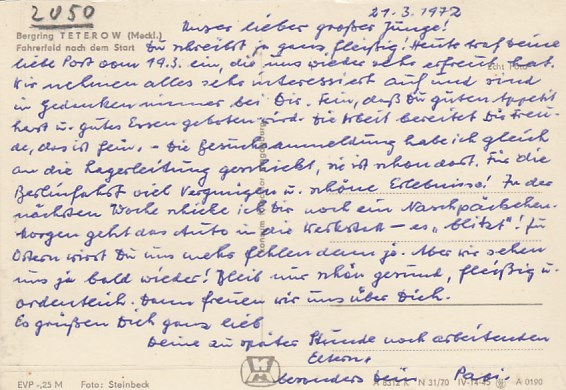 2050
21.3.1972
Bergring TETEROW (Meckl.)
Fahrerfeld nach dem Start
Echt Foto
Unser lieber großer Junge!
Du schreibst ja ganz fleißig! Heute traf Deine
liebe Post vom 19.3. ein, die uns wieder sehr erfreut hat.
Wir nehmen alles sehr interessiert auf und sind
in Gedanken immer bei Dir. Fein, daß Du guten Appetit
hast u. gutes Essen geboten wird. Die Arbeit bereitet Dir Freu-
de, das ist fein. – Die Besuchsanmeldung habe ich gleich
an die Lagerleitung geschickt, sie ist schon dort. Für die
Berlinfahrt viel Vergnügen u. schöne Erlebnisse! In der
nächsten Woche schicke ich Dir noch ein Naschpäckchen.
Morgen geht das Auto in die Werkstatt – es „blitzt"! Zu
Ostern wirst Du uns mehr fehlen denn je. Aber wir sehen
uns ja bald wieder! Bleib nur schön gesund, fleißig u.
ordentlich. Dann freuen wir uns über Dich.
Es grüßen Dich ganz lieb
Deine zu später Stunde noch arbeitenden
Eltern,
besonders Dein Papi.
EVP -,25 M Foto: Steinbeck
N 31/70 IV-14-45 A 0190